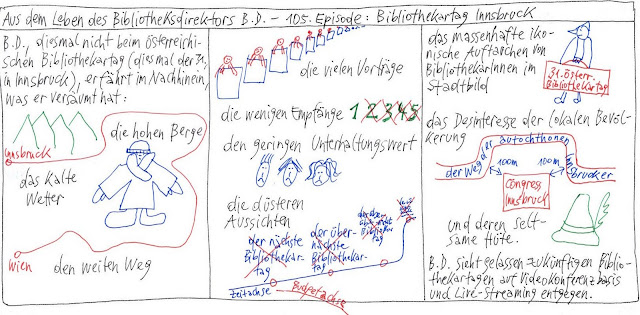 Aus dem Leben des Bibliotheksdirektors B.D. - 105. Episode: Bibliothekartag Innsbruck
B.D., diesmal nicht beim österreichi-
schen Bibliothekartag (diesmal der 31.
in Innsbruck), erfährt im Nachhinein,
was er versäumt hat:
die hohen Berge
Innsbruck
das kalte
Wetter
Wien
den weiten Weg
die vielen Vorträge
die wenigen Empfänge 1 2 3 4 5
den geringen Unterhaltungswert
die düsteren
Aussichten
der nächste
Bibliothekar-
tag
der über-
nächste
Bibliothekar-
tag
Zeitachse
Budgetachse
das massenhafte iko-
nische Auftauchen von
BibliothekarInnen im
Stadtbild
31. österr.
Bibliothekartag
das Desinteresse der lokalen Bevöl-
kerung
der Weg der autochthonen Innsbrucker
100m
100m
Congress
Innsbruck
und deren selt-
same Hüte.
B.D. sieht gelassen zukünftigen Biblio-
thekartagen auf Videokonferenzbasis
und Live-Streaming entgegen.